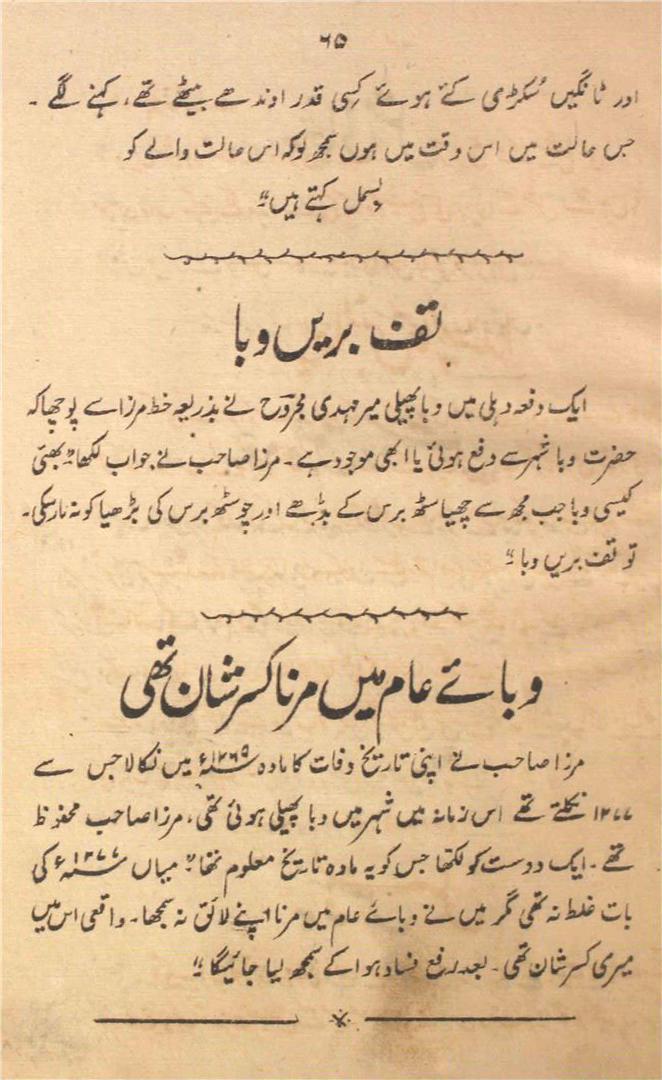 ۶۵
اور ٹانگیں سُکڑی کئے ہوئے کِسی قدر اوندھے بیٹھے تھے، کہنے لگے ۔
جس حالت میں اس وقت میں ہوں سمجھ لو کہ اس حالت والے کو
بِسمل کہتے ہیں"
تف بریں وبا
ایک دفعہ دہلی میں وبا پھیلی میر مہدی مجروح نے بذریعہ خط مرزا سے پوچھا کہ
حضرت وبا شہر سے دفع ہوئی یا ابھی موجود ہے ۔ مرزا صاحب نے جواب لکھا "بھئی
کیسی وبا جب مجھ سے چھیاسٹھ برس کے بڈھے اور چوسٹھ برس کی بڑھیا کو نہ مار سکی ۔
تو تف بریں وبا"
وبائے عام میں مرنا کسر شان تھی
مرزا صاحب نے اپنی تاریخ وفات کا مادہ ۱۲۶۹ء میں نکالا جس سے
۱۲۷۷ نکلتے تھے اس زمانہ میں شہر میں وبا پھیلی ہوئی تھی، مرزا صاحب محفوظ
تھے ۔ ایک دوست کو لکھا جس کو یہ مادہ تاریخ معلوم تھا "میاں ۱۲۷۷ء کی
بات غلط نہ تھی مگر میں نے وبائے عام میں مرنا اپنے لائق نہ سمجھا ۔ واقعی اس میں
میری کسر شان تھی ۔ بعد رفع فساد ہوا کے سمجھ لیا جائیگا"